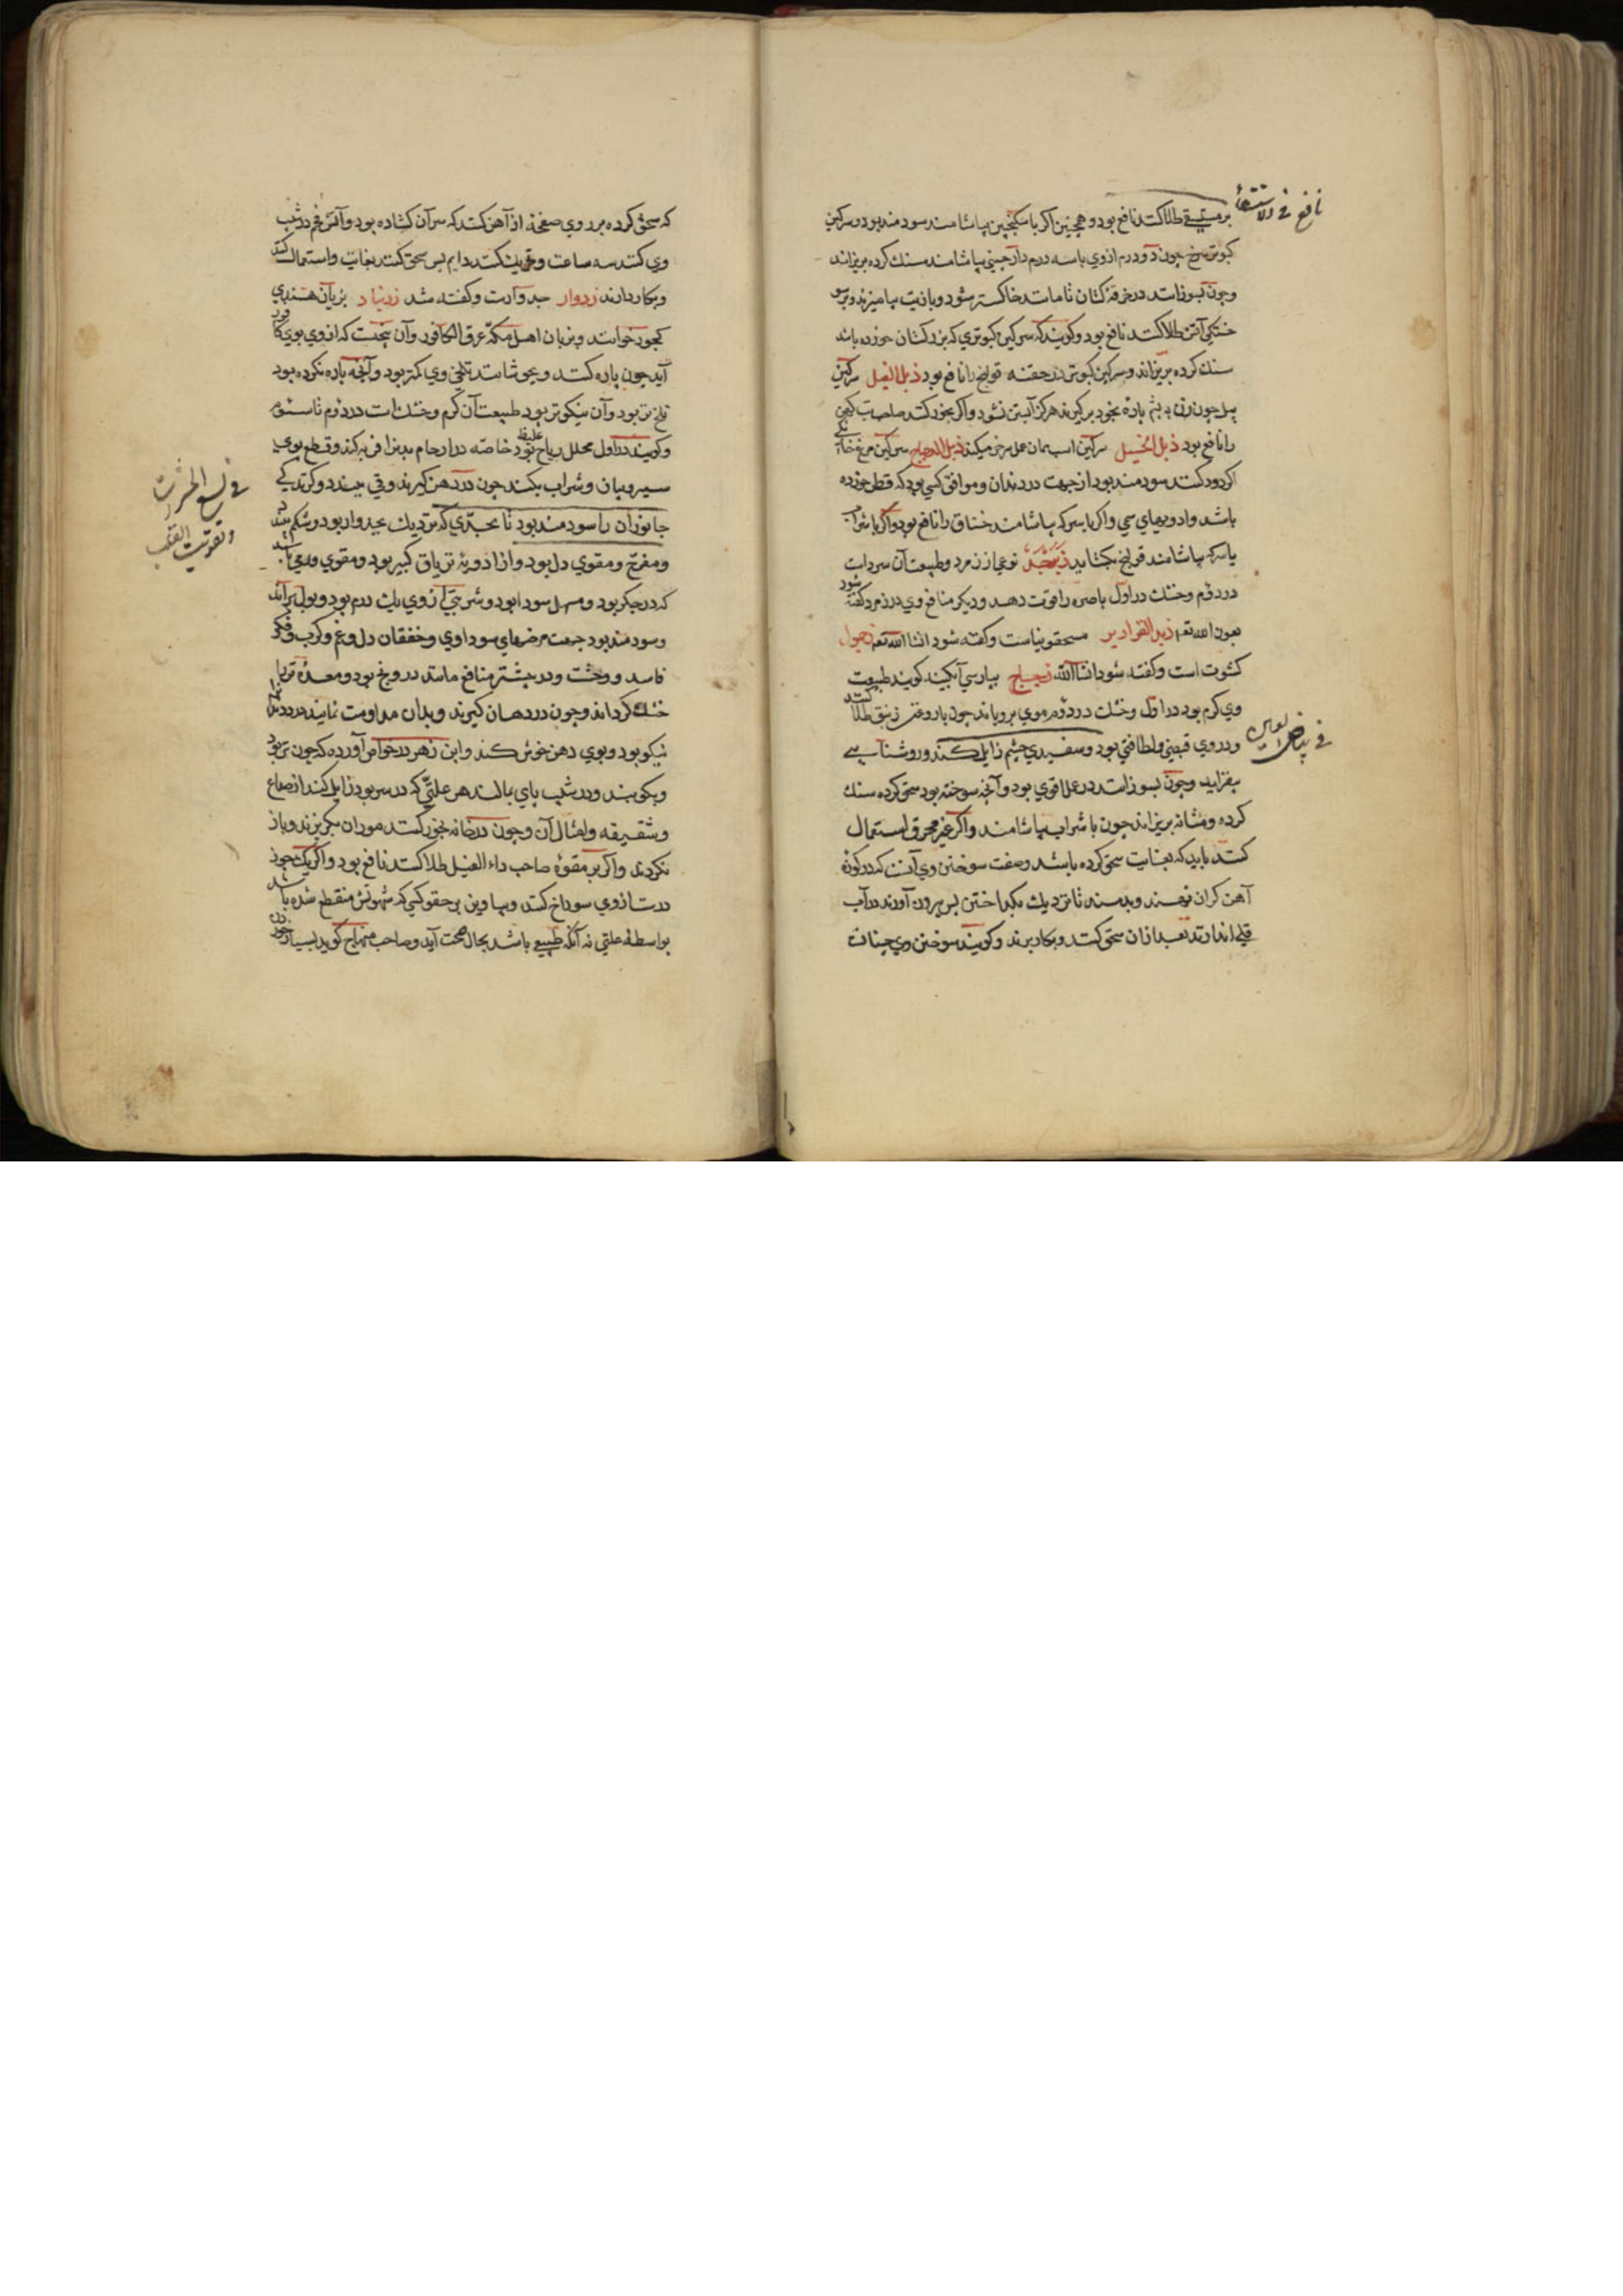 نافع فی الاستسقا
بر مستسقی طلا کنند نافع بود و همچنین اکر با سکنجبین بیاشامند سودمند بود و سرکین
کبوتر سرخ چون دو درم از وی با سه درم دارچینی بیاشامند سنك کرده بریزاند
و چون بسوزانند در خرقه کتان تا مانند خاکستر شود و با زیت بیامیزند و بر سو
ختکی آتش طلا کنند نافع بود و کویند که سرکین کبوتری که بزر کتان خورده باشد
سنك کرده بریزاند و سرکین کبوتر در حقنه قولنج را نافع بود ذبل الفیل سرکین
پیل چون زن به پشم پاره بخود برکیرد هرکز آبستن نشود و اکر بخور کنند صاحب تب کهن
را نافع بود ذبل الخیل سرکین اسب همان عمل سرخر میکند ذبل الدجاج سرکین مرغ خانکی
اکر دود کنند سودمند بود از جهت درد دندان و موافق کسی بود که فطر خورده
باشد و ادویهای سمی و اکر با سرکه بیاشامند خناق را نافع بود و اکر با شراب
یا سرکه بیاشامند قولنج بکشاید زبرجد نوعی از زمرد و طبیعت آن سرد است
در دوم و خشك در اول باصره را قوت دهد و دیکر منافع وی در زمرد کفته شود
بعون الله تعم زبد القواریر مسحقونیاست و کفته شود انشا الله تعم زجمول
کشوت است و کفته شود انشاالله زجاج بپارسی آبکینه کویند طبیعت
وی کرم بود در اول و خشك در دوم موی برویاند چون با روغن زنبق طلا کنند
فی بیاض العین
و در وی قبضی و لطافتی بود و سفیدی چشم زایل کند و روشنایی
بیفزاید و چون بسوزانند در عمل قوی بود و آنچه سوخته بود سحق کرده سنك
کرده و مثانه بریزاند چون با شراب بیاشامند و اکر غیر محرق استعمال
کنند باید که بغایت سحق کرده باشد و صفت سوختن وی آنست که در کوره
آهن کران نهند و بدمند تا نزدیك بکداختن پس بیرون آورند در آب
قلی اندازند بعد از آن سحق کنند و بکار برند و کویند سوختن وی چنانست
که سحق کرده بر روی صفحه از آهن کنند که سر آن کشاده بود و آتش فحم در شیب
وی کنند سه ساعت و تحریك کنند دایم پس سحق کنند بغایت و استعمال کنند
و بکار دارند زدوار جدوارست و کفته شد زرنباد بزبان هندی
کجور خوانند و بزبان اهل مکه عرق الکافور و آن بیخیست که از وی بوی کافور
آید چون پاره کنند و بجوشانند تلخی وی کمتر بود و آنچه پاره نکرده بود
تلخ تر بود و آن نیکوتر بود طبیعت آن کرم و خشك است در دوم تا سیوم
و کویند در اول محلل ریاح غلیظ بود خاصه در ارحام بدن را فربه کند و قطع بوی
سیر و پیاز و شراب بکند چون در دهن کیرند و قی ببندد و کزندکی
جانوران را سودمند بود تا بحدی که نزدیك بجدوار بود و شکم ببندد
فی لسع الحشرات
و تقویت القلب
و مفرح و مقوی دل بود و از ادویه تریاق کبیر بود و مقوی ودی باشد
که در جکر بود و مسهل سودا بود و شربتی از وی یك درم بود و بول براند
و سودمند بود جهت مرضهای سوداوی و خفقان دل و غم و کرب و فکر
فاسد و وحشت و در بیشتر منافع مانند درونج بود و معده تر را
خشك کرداند و چون در دهان کیرند و بدان مداومت نمایند درد دندان
نیکو بود و بوی دهن خوش کند و ابن زهر در خواص آورده که چون تر بود
و بکوبند و در شب بپای بمالند هر علتی که در سر بود زایل کند از صداع
و شقیقه و امثال آن و چون در خانه بخور کنند موران بکریزند و باز
نکردند و اکر بر مقوه صاحب داء الفیل طلا کنند نافع بود و اکر یك جوز
درست از وی سوراخ کنند و بیاویزند بر حقو کسی که شهوتش منقطع شده باشد
بواسطه علتی نه آنکه طبیعی باشد بحال صحت آید و صاحب منهاج کوید بسیار خوردن